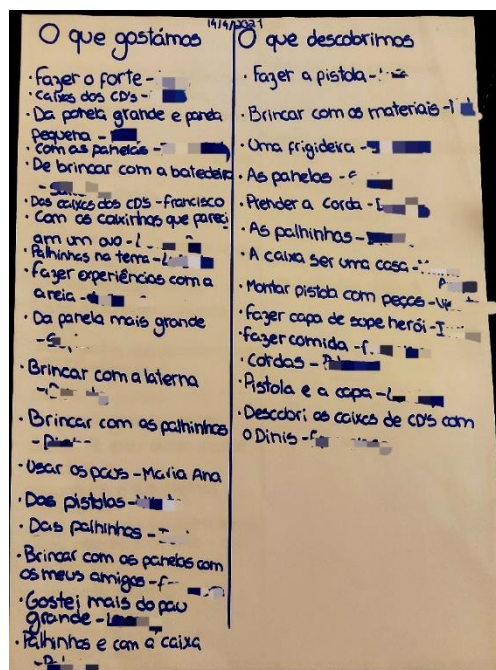 14/4/2021
O que gostámos
· Fazer o forte -
· Caixas dos CD's -
· Da panela grande e panela
pequena -
· Com as panelas -
· De brincar com a batedeira
-
· Das caixas dos CD'S - Francisco
· Com as caixinhas que pareci
am um ovo - L
· Palhinhas na terra - L
· fazer experiências com a
areia -
· Da panela mais grande
-
· Brincar com a laterna
-
· Brincar com as palhinhas
-
· Usar os paus - Maria Ana
· Das pistolas -
· Das palhinhas -
· Brincar com as panelas com
os meus amigos - f
· Gostei mais do pau
grande - L
· Palhinhas e com a caixa
-
O que descobrimos
· Fazer a pistola -
· Brincar com os materiais -
· Uma frigideira -
· As panelas -
· Prender a corda -
· As palhinhas -
· A caixa ser uma casa -
· Montar pistola com peças -
· fazer capa de supe herói - I
· fazer comida - f
· cordas -
· Pistola e a capa - L
· Descobri as caixas de CD's com
o Dinis -